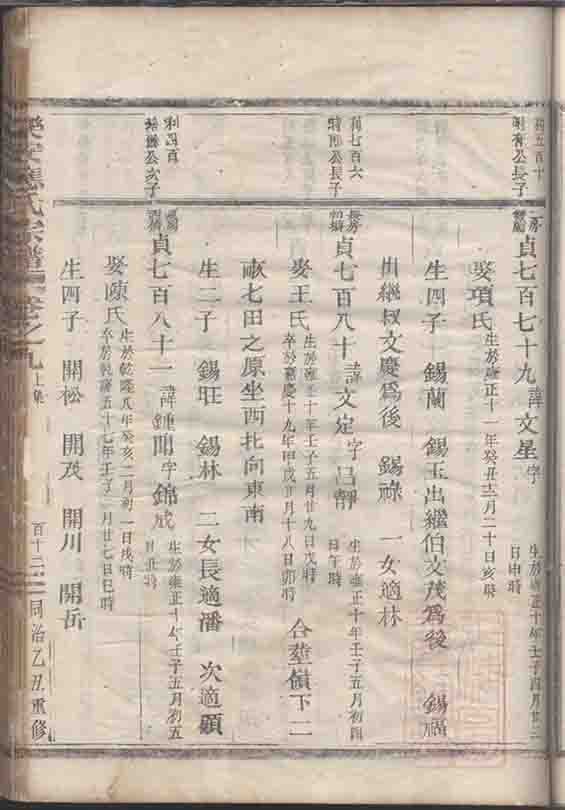 貞七百七十九 諱文星 字 生於雍正十年壬子四月廿二日申時
娶項氏 生於雍正十一年癸丑十二月二十日亥時
生四子 錫蘭 錫玉出繼伯文茂爲後 錫福
出繼叔文慶爲後 錫祿 一女適林
利七百六
長子
長房
貞七百八十 諱文定 字呂靜 生於雍正十年壬子五月初四日午時
娶王氏 生於雍正十年壬子五月廿九日戌時 卒於嘉慶十九年甲戌正月十八日卯時 合塟嶺下二
畝七田之原坐西北向東南
生二子 錫旺 錫林 二女長適潘 次適顧
公次子
貞七百八十一 諱鍾聞 字錦成 生於雍正十年壬子五月初五日丑時
娶陳氏 生於乾隆八年癸亥二月初一日戌時 卒於乾隆五十七年壬子 月廿七日巳時
生四子 開松 開茂 開川 開岳
氏宗譜 卷之九 上集 百十二 同治乙丑重修